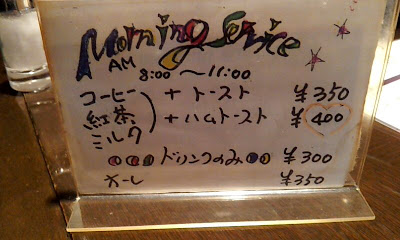 Morning Service
AM
8:00 〜11:00
コーヒー + トースト ¥350
紅茶 + ハムトースト ¥400
ミルク
ドリンクのみ ¥300
オーレ ¥350